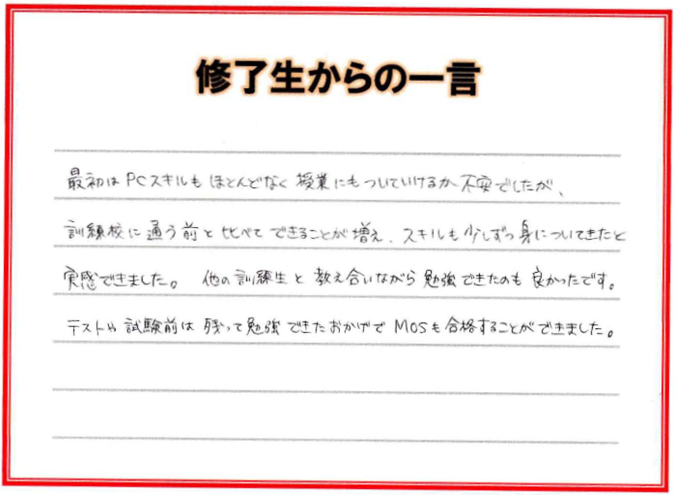 修了生からの一言
最初はPCスキルもほとんどなく授業にもついていけるか不安でしたが、
訓練校に通う前と比べてできることが増え、スキルも少しずつ身についてきたと
実感できました。 他の訓練生と教え合いながら勉強できたのも良かったです。
テストや試験前は残って勉強できたおかげでMOSも合格することができました。